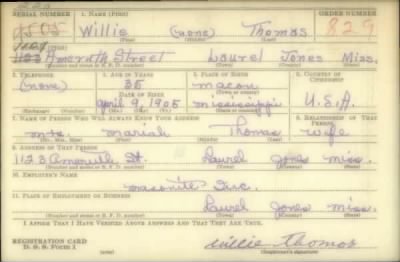 SERIAL NUMBER 1. NAME (Print) ORDER NUMBER
Willie (none) Thomas 829
(First) (Middle) (Last)
1123 Ameruth Street Laurel Jones Miss.
(Number and street or R. F. D. number) (Town) (County) (State)
2. TELEPHONE 3. AGE IN YEARS 4. PLACE OF BIRTH 5. COUNTRY OF CITIZENSHIP
(none) 35 Macon
DATE OF BIRTH
April 9, 1905 Mississippi U.S.A.
(Exchange) (Number) (Mo.) (Day) (Yr.) (State or country)
6. NAME OF PERSON WHO WILL ALWAYS KNOW YOUR ADDRESS 7. RELATIONSHIP OF THAT PERSON
Mrs. Mariah Thomas wife
(Mr., Mrs., Miss) (First) (Middle) (Last)
8. ADDRESS OF THAT PERSON
1123 Ameruth St. Laurel Jones Miss.
(Number and street or R. F. D. number) (Town) (County) (State)
9. EMPLOYER'S NAME
Masonite Inc.
10. PLACE OF EMPLOYMENT OR BUSINESS
Laurel Jones Miss.
(Number and street or R. F. D. number) (Town) (County) (State)
I AFFIRM THAT I HAVE VERIFIED ABOVE ANSWERS AND THAT THEY ARE TRUE.
REGISTRATION CARD
D. S. S. Form 1
Willie Thomas
(Registrant's signature)